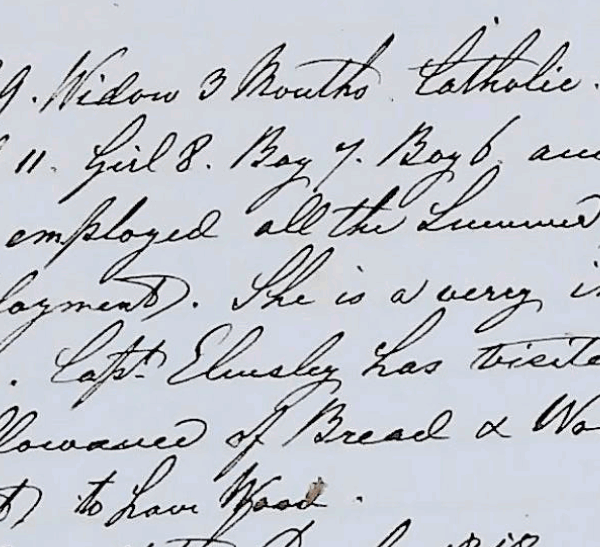 9. Widow 3 Months. Catholic.
11. Girl 8. Boy 7. Boy 6. and
employed all the Summer
loyment. She is a very in
. Capt. Elmsley has visite
llowance of Bread & Wo
to have Wood.